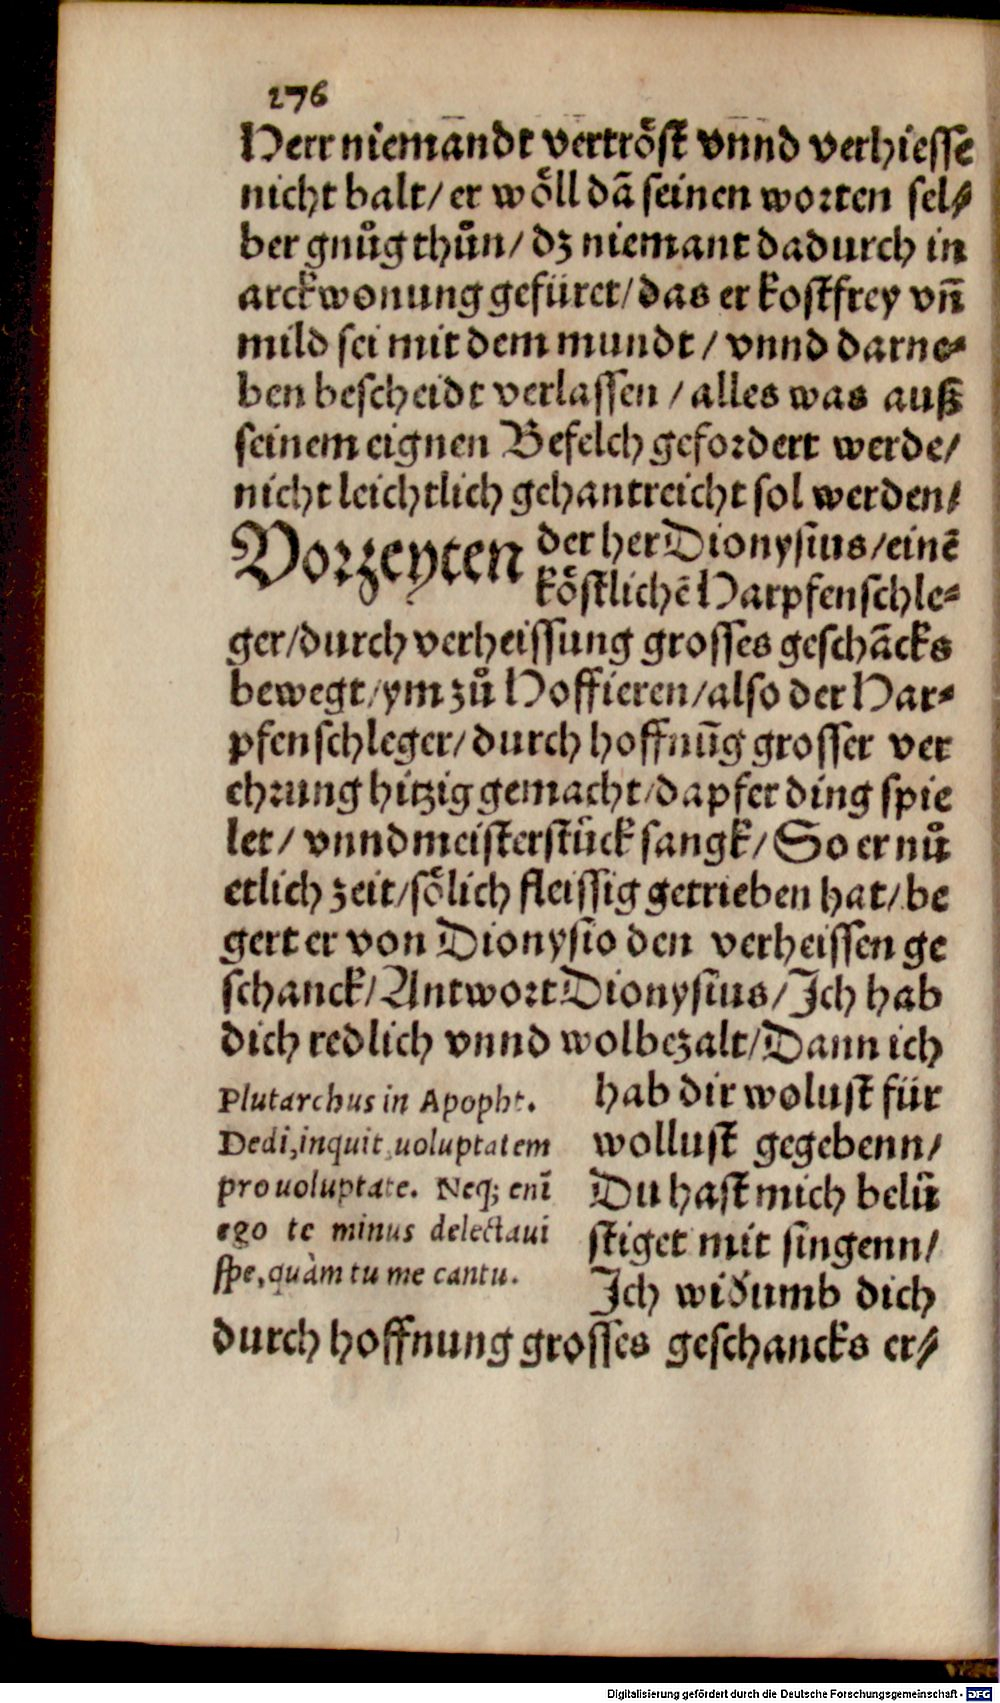 276
Herr niemandt vertröst vnnd verhiesse
nicht balt/ er wöll dā seinen worten sel⸗
ber gnůg thůn/ dz niemant dadurch in
arckwonung gefüret/ das er kostfrey vn̄
mild sei mit dem mundt / vnnd darne⸗
ben bescheidt verlassen / alles was auß
seinem eignen Befelch gefordert werde/
nicht leichtlich gehantreicht sol werden/
Vorzeyten der her Dionysius/ einē
köstlichē Harpfenschle⸗
ger/ durch verheissung grosses geschācks
bewegt/ ym zů Hoffieren/ also der Har⸗
pfenschleger/ durch hoffnūg grosser ver
ehrung hitzig gemacht/ dapfer ding spie
let/ vnnd meisterstück sangk/ So er nů
etlich zeit/ sölich fleissig getrieben hat/ be
gert er von Dionysio den verheissen ge
schanck/ Antwort Dionysius/ Ich hab
dich redlich vnnd wolbezalt/ Dann ich
hab dir wolust für
wollust gegebenn/
Du hast mich belū
stiget mit singenn/
Ich widumb dich
Plutarchus in Apopht.
Dedi, inquit uoluptatem
pro uoluptate. Neq; enī
ego te minus delectaui
spe, quàm tu me cantu.
durch hoffnung grosses geschancks er⸗
Digitalisierung gefördert durch die Deutsche Forschungsgemeinschaft - DFG